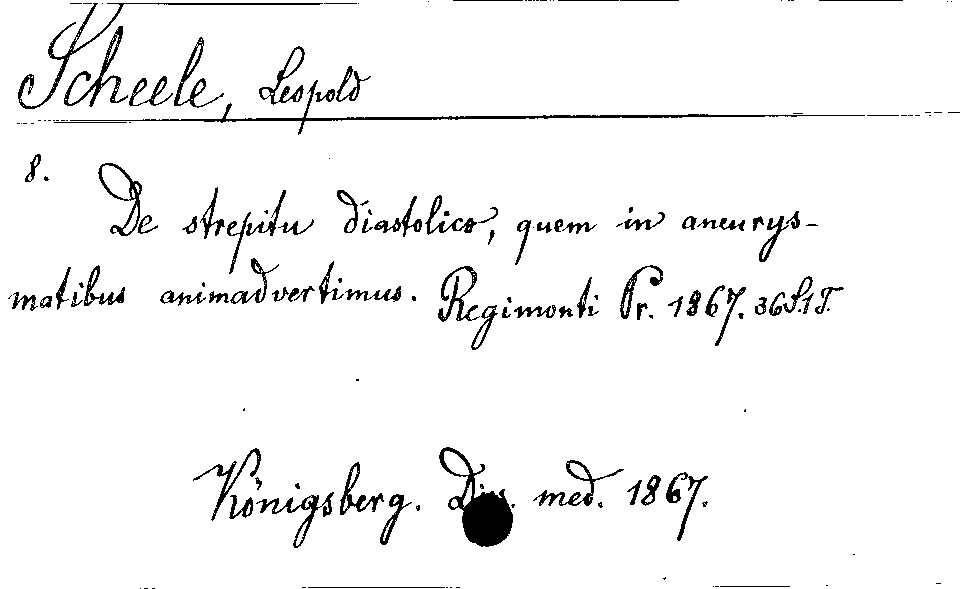 Scheele, Leopold
8.
De strepitu diastolico, quem in aneurys-
matibus animadvertimus. Regimonti Pr. 1867. 36 S. 1 T.
Königsberg. Diss. med. 1867.